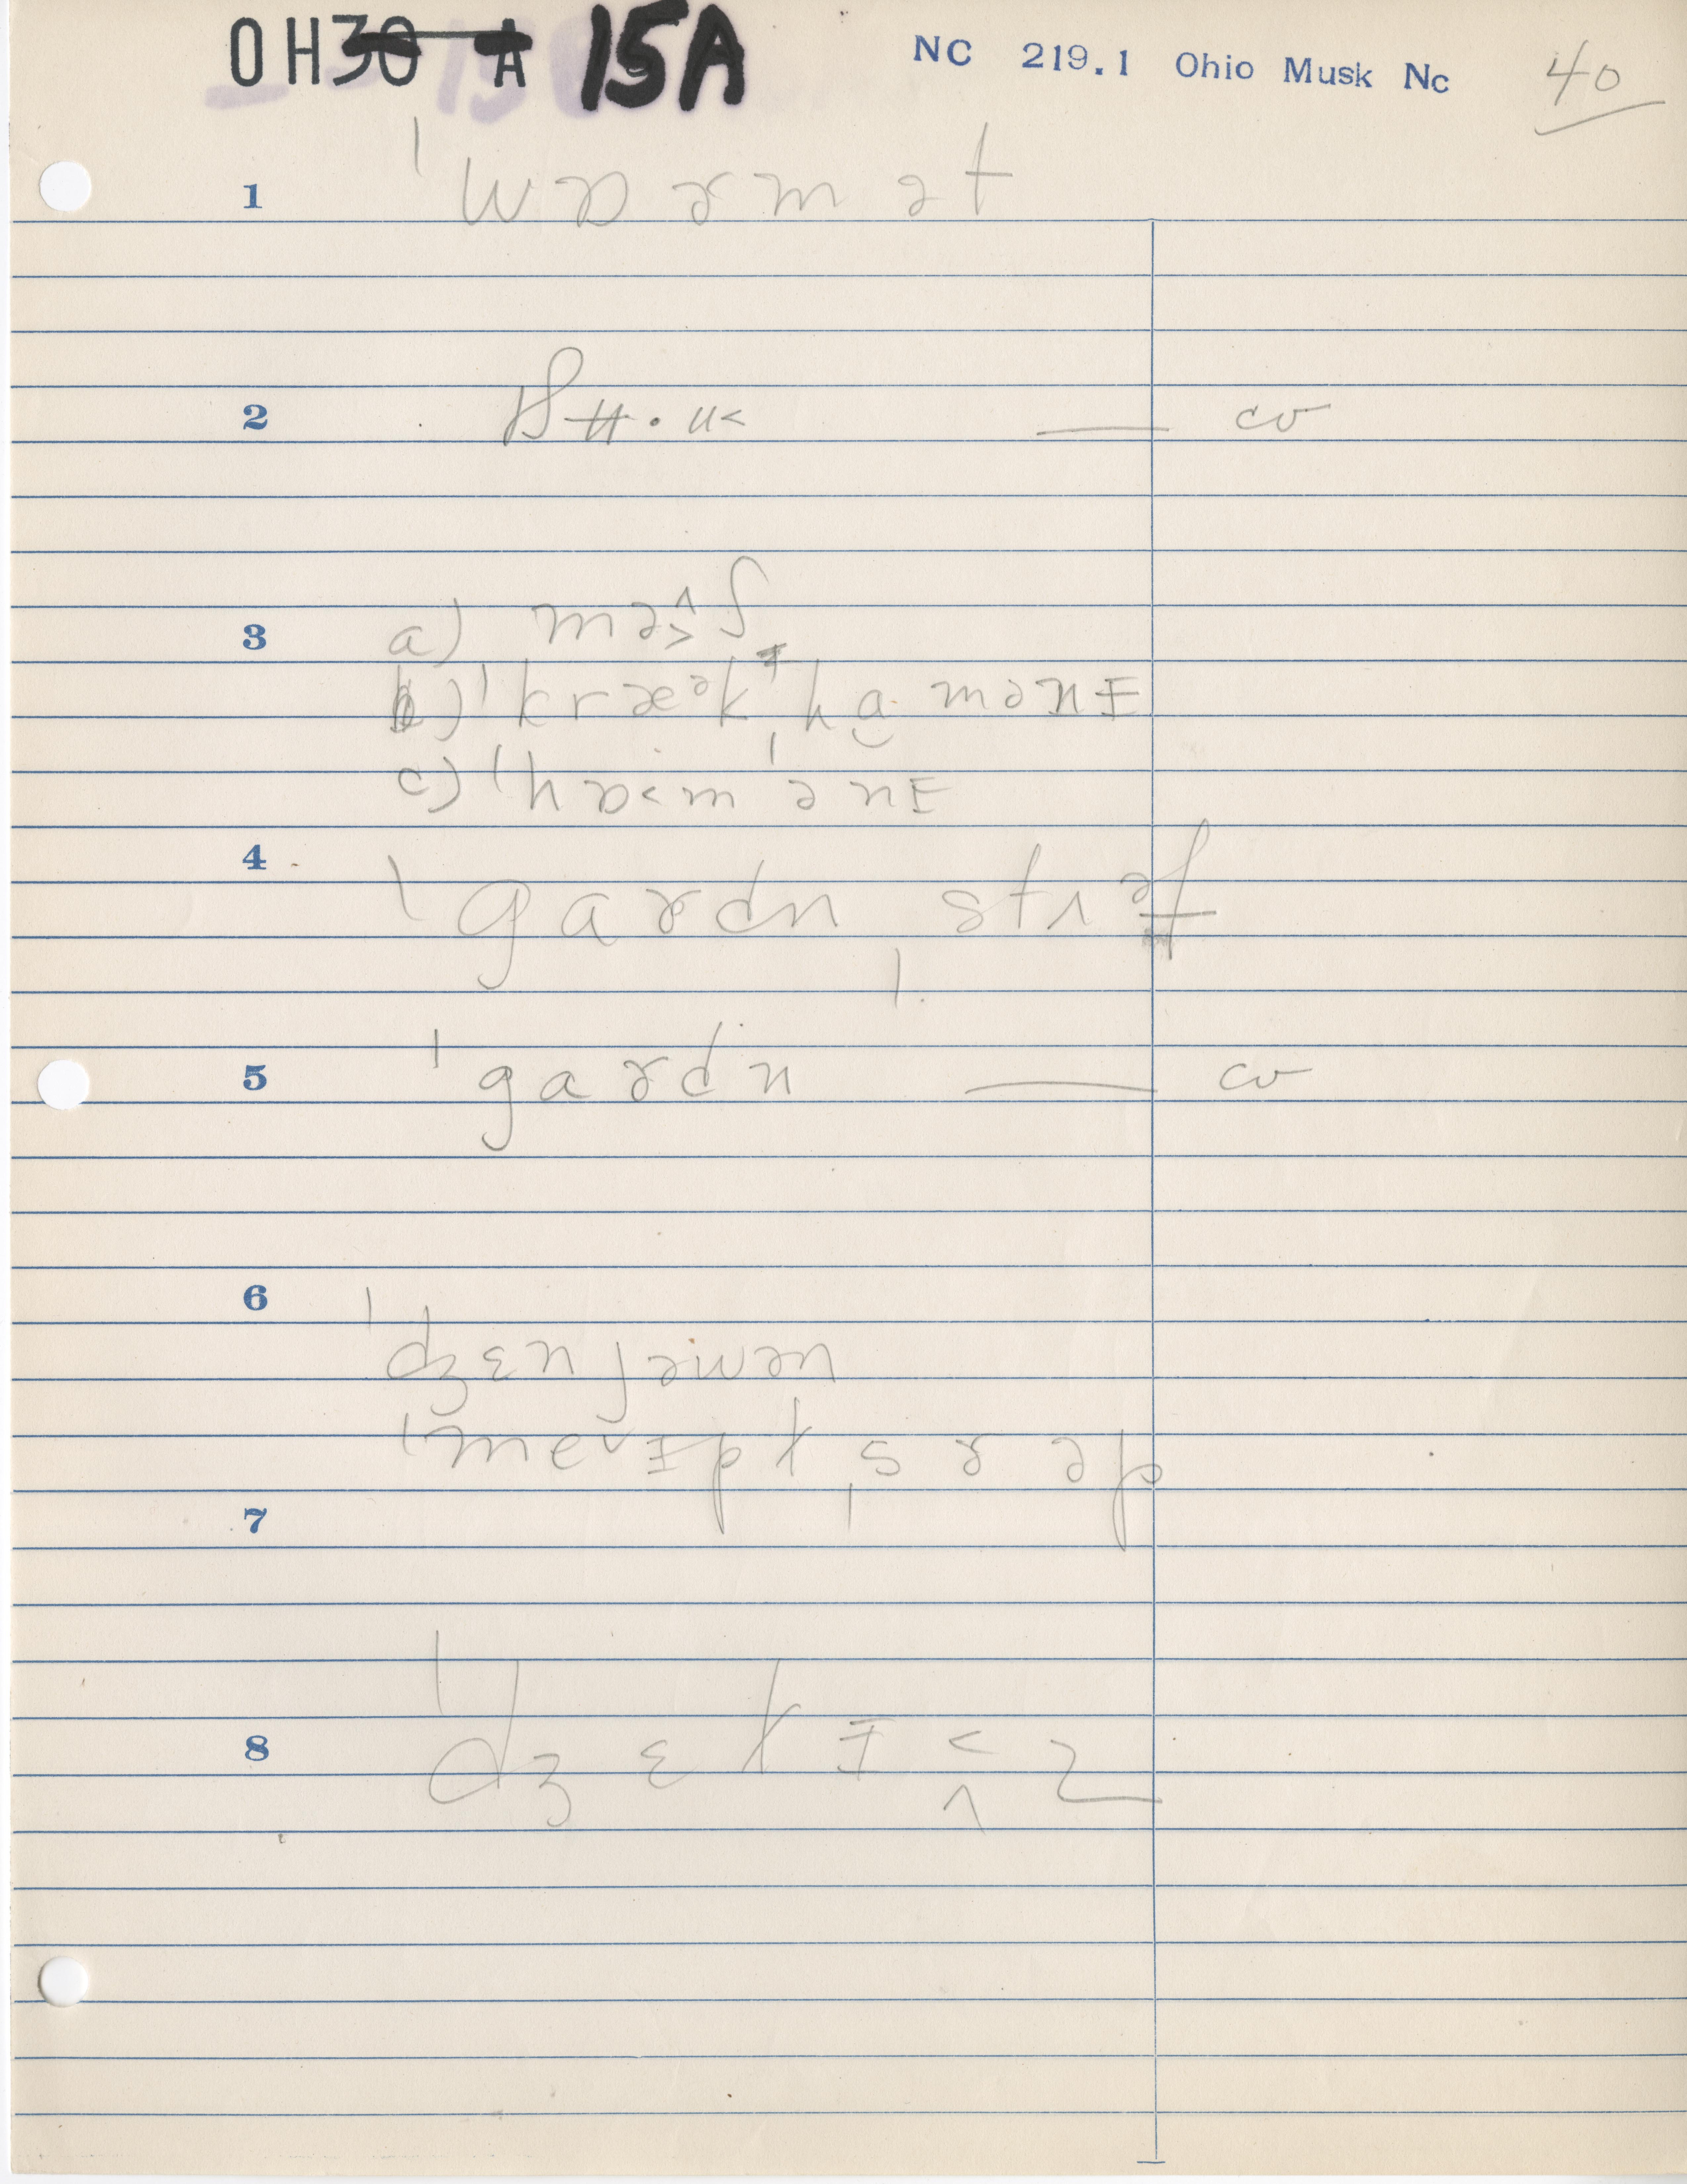 OH30 A 15A NC 219.1 Ohio Musk Nc 40
1 ˈwɒɚmət
2 — cv
3 a) məʃ
b) ˈkræᵊkˌhɑmənɪ
c) ˈhɒmˌənɪ
4 ˈgaɚdn ˌstʌf
5 ˈgaɚdn — cv
6 ˈdʒɛnjəwən
ˈmeɪplˌsɚəp
7
8 ˈdʒɛlɪz